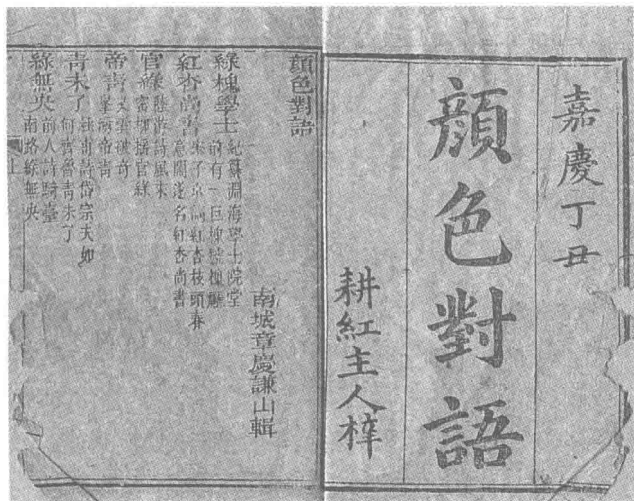 嘉慶丁丑
顏色對語
耕紅主人梓
顏色對語
南城章慶謙山輯
綠槐學士
紀纂淵海學士院堂
前有一巨槐號槐廳
紅杏尚書
宋子京詞紅杏枝頭春
意鬧遂名紅杏尚書
官綠
陸游詩風來
搖官綠
帝青
帝青
青未了
杜甫詩岱宗夫如
何齊魯青未了
綠無央
前人詩騎臺
南路綠無央
上